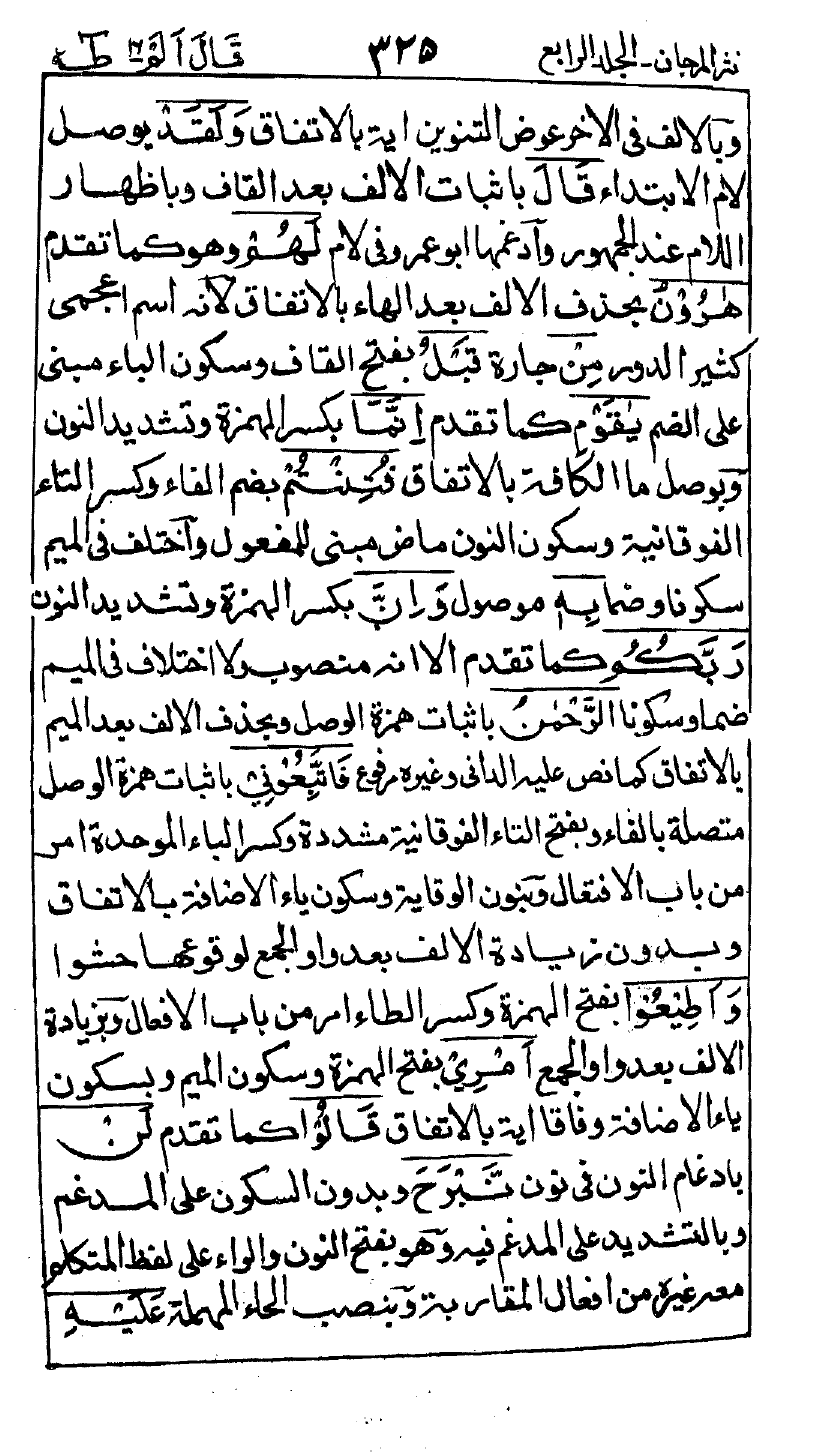 نثر المرجان - الجلد الرابع ٣٢٥ قَالَ اَلَمْ ١٦ طٰهٰ
وبالالف فى الاخر عوض التنوين اية بالاتفاق وَلَقَدْ بوصل
لام الابتداء قَالَ باثبات الالف بعد القاف وباظهار
اللام عند الجمهور وآدغمها ابو عمرو فى لام لَهُمْ وهو كما تقدم
هٰرُوْنُ بحذف الالف بعد الهاء بالاتفاق لآنه اسم اعجمى
كثير الدور مِنْ جارة قَبْلُ بفتح القاف وسكون الباء مبنى
على الضم يٰقَوْمِ كما تقدم اِنَّمَا بكسر الهمزة وتشديد النون
وبوصل ما الكافة بالاتفاق فُتِنْتُمْ بضم الفاء وكسر التاء
الفوقانية وسكون النون ماض مبنى للمفعول وآختلف فى الميم
سكونا وضما بِهٖ موصول وَاِنَّ بكسر الهمزة وتشديد النون
رَبَّكُمُ كما تقدم الا انه منصوب ولا اختلاف فى الميم
ضما وسكونا الرَّحْمٰنُ باثبات همزة الوصل وبحذف الالف بعد الميم
بالاتفاق كما نص عليه الدانى وغيره مرفوع فَاتَّبِعُوْنِىْ باثبات همزة الوصل
متصلة بالفاء وبفتح التاء الفوقانية مشددة وكسر الباء الموحدة امر
من باب الافتعال وبنون الوقاية وسكون ياء الاضافة بالاتفاق
وبدون زيادة الالف بعد واو الجمع لوقوعها حشوا
وَاَطِيْعُوْا بفتح الهمزة وكسر الطاء امر من باب الافعال وبزيادة
الالف بعد واو الجمع اَمْرِىْ بفتح الهمزة وسكون الميم وبسكون
ياء الاضافة وفاقا اية بالاتفاق قَالُوْا كما تقدم لَنْ
بادغام النون فى نون نَّبْرَحَ وبدون السكون على المدغم
وبالتشديد على المدغم فيه وهو بفتح النون والراء على لفظ المتكلم
معه غيره من افعال المقاربة وبنصب الحاء المهملة عَلَيْهِ